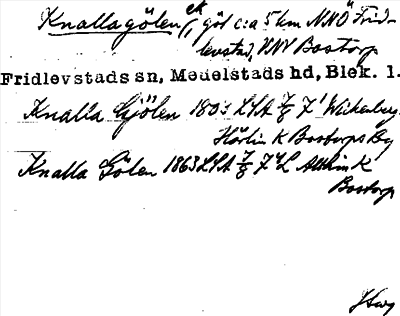 Knallagölen, ek, göl c:a 5 km NNÖ Frid-
levstad, VNV Bostorp
Fridlevstads sn, Medelstads hd, Blek. l.
Knalla Gjölen LSA 7/8 7 Wickenberg
Härlin K Bostorps Äg
Knalla Gölen 1863 LSA 7/8 K
Bostorp